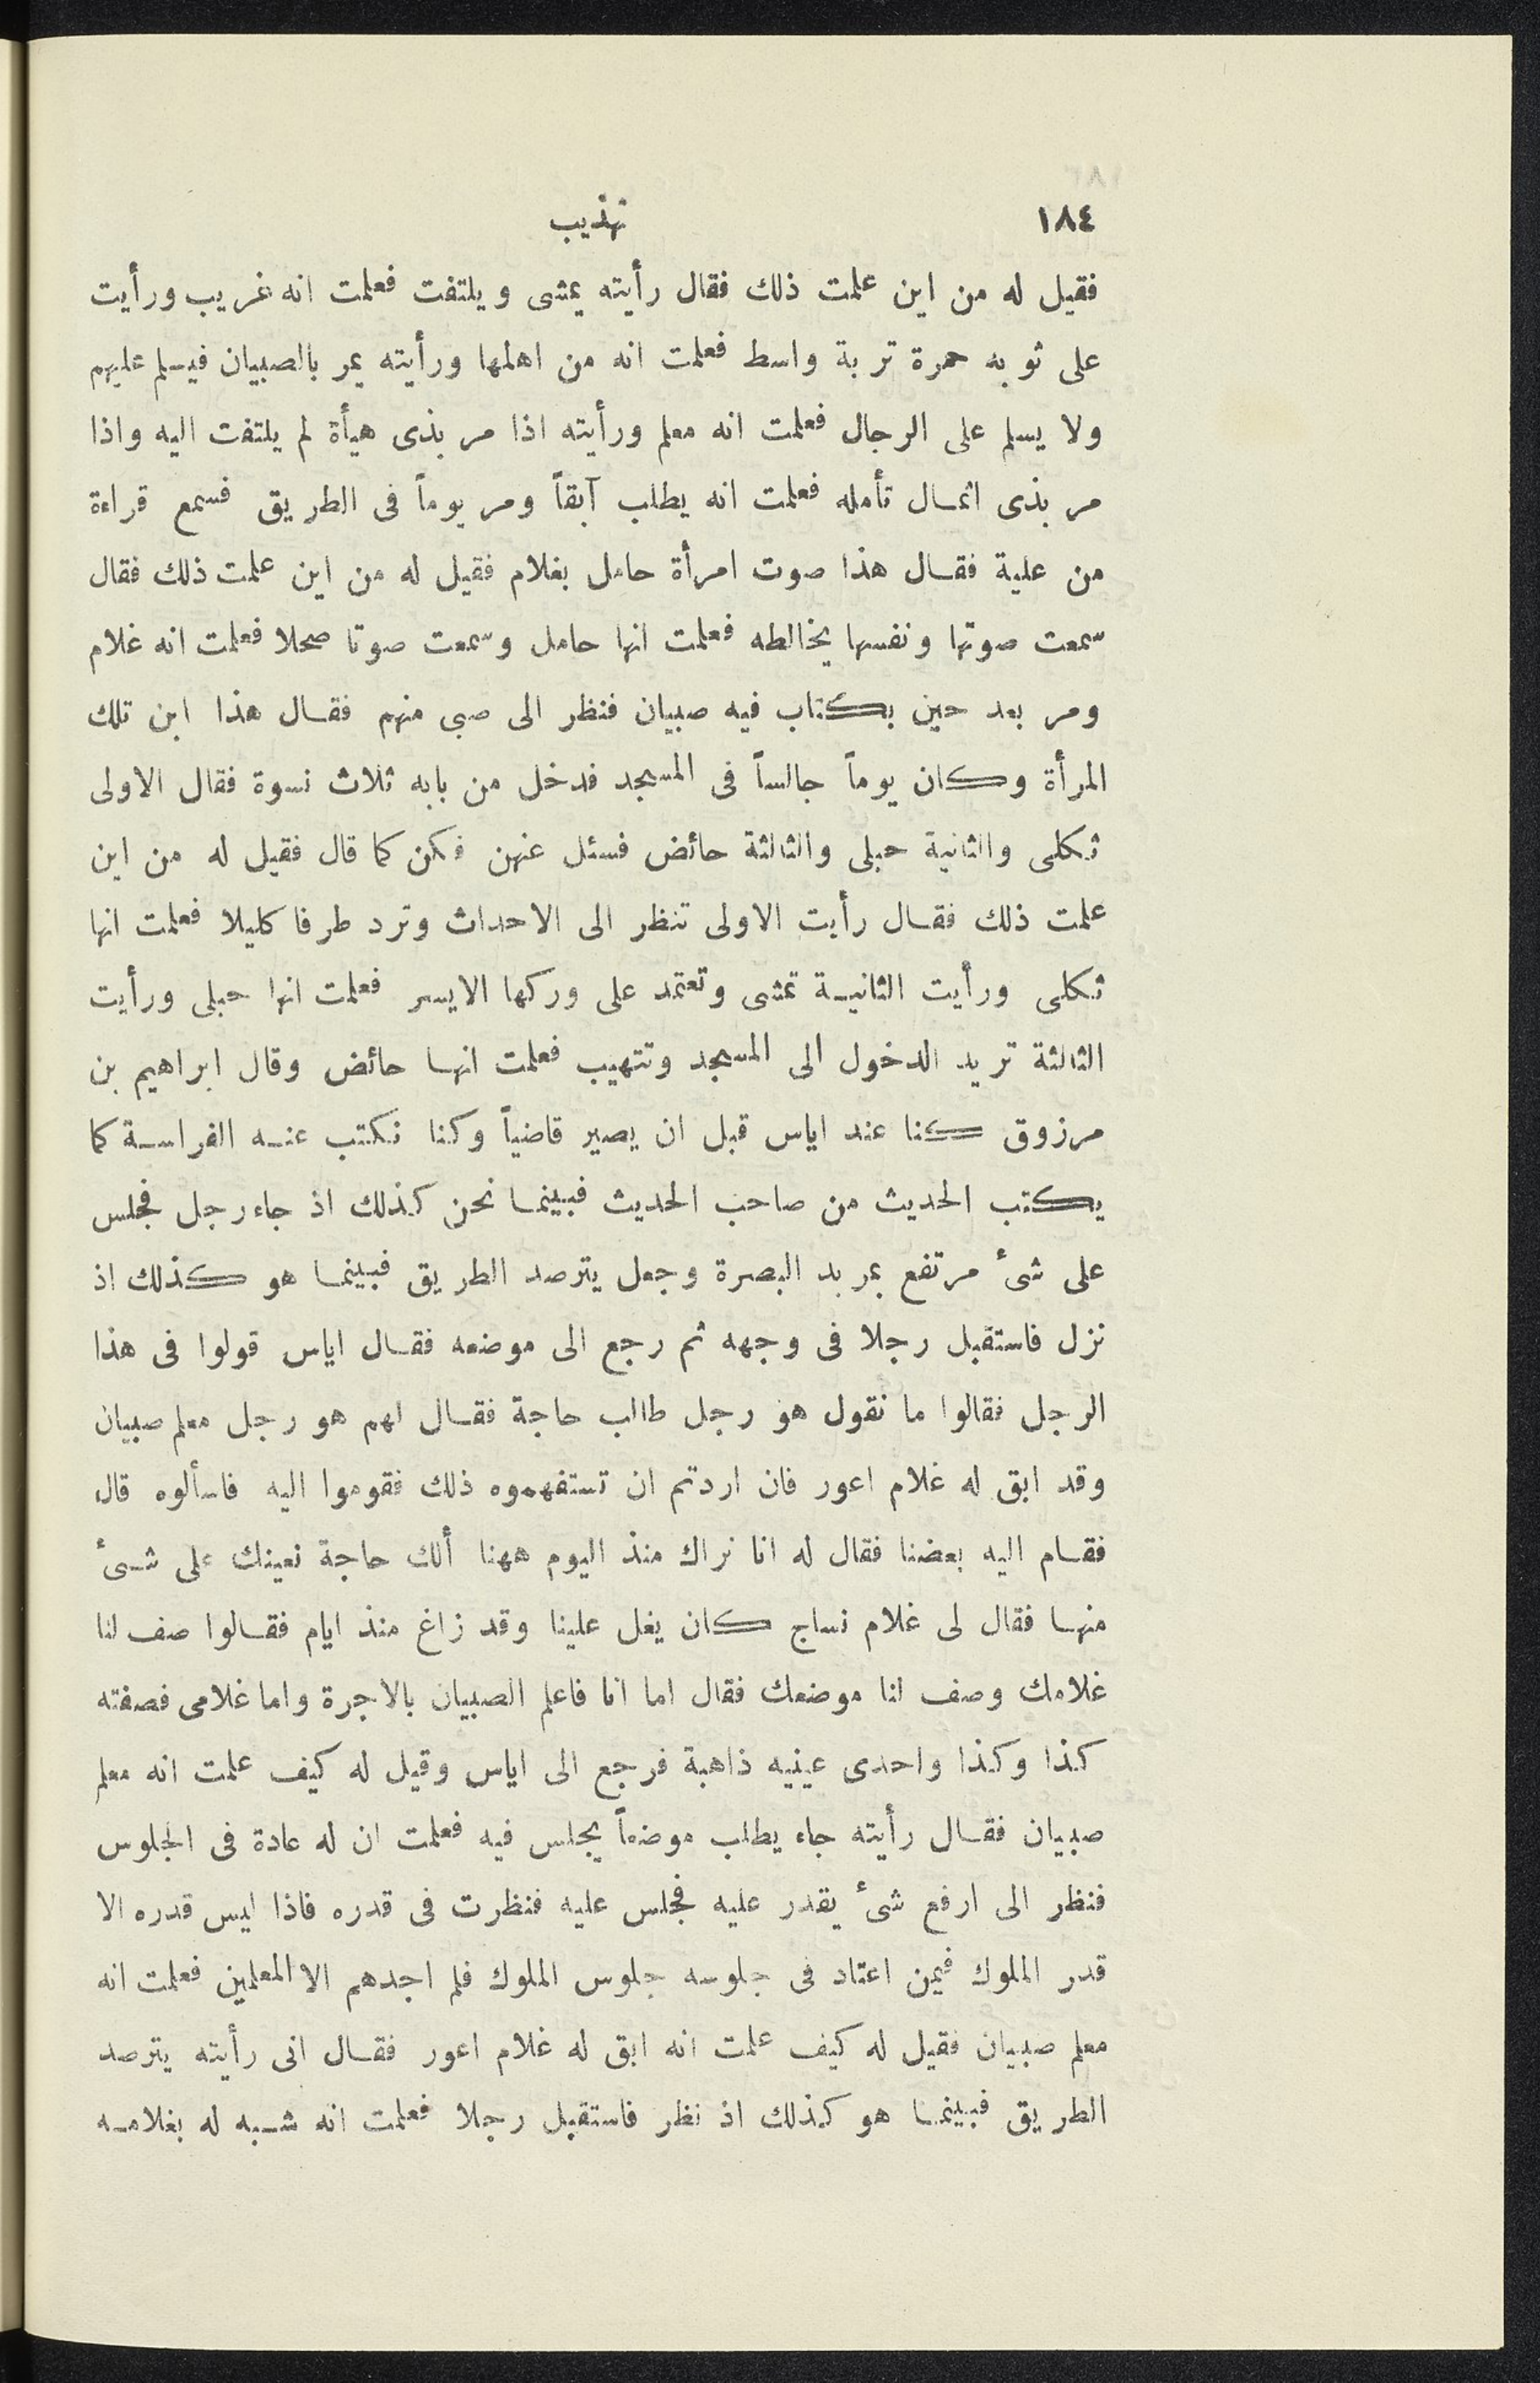 ١٨٤
تهذيب
فقيل له من اين علمت ذلك فقال رأيته يمشى ويلتفت فعلمت انه غريب ورأيت
على ثوبه حمرة تربة واسط فعلمت انه من اهلها ورأيته يمر بالصبيان فيسلم عليهم
ولا يسلم على الرجال فعلمت انه معلم ورأيته اذا مر بذى هيأة لم يلتفت اليه واذا
مر بذى اثمال تأمله فعلمت انه يطلب آبقاً ومر يوماً فى الطريق فسمع قراءة
من علية فقال هذا صوت امرأة حامل بغلام فقيل له من اين علمت ذلك فقال
سمعت صوتها ونفسها يخالطه فعلمت انها حامل وسمعت صوتا صحلا فعلمت انه غلام
ومر بعد حين بكتاب فيه صبيان فنظر الى صبى منهم فقال هذا ابن تلك
المرأة وكان يوماً جالساً فى المسجد فدخل من بابه ثلاث نسوة فقال الاولى
ثكلى والثانية حبلى والثالثة حائض فسئل عنهن فكن كما قال فقيل له من اين
علمت ذلك فقال رأيت الاولى تنظر الى الاحداث وترد طرفا كليلا فعلمت انها
ثكلى ورأيت الثانية تمشى وتعتمد على وركها الايسر فعلمت انها حبلى ورأيت
الثالثة تريد الدخول الى المسجد وتتهيب فعلمت انها حائض وقال ابراهيم بن
مرزوق كنا عند اياس قبل ان يصير قاضياً وكنا نكتب عنه الفراسة كما
يكتب الحديث من صاحب الحديث فبينما نحن كذلك اذ جاء رجل فجلس
على شىٔ مرتفع بمربد البصرة وجعل يترصد الطريق فبينما هو كذلك اذ
نزل فاستقبل رجلا فى وجهه ثم رجع الى موضعه فقال اياس قولوا فى هذا
الرجل فقالوا ما نقول هو رجل طالب حاجة فقال لهم هو رجل معلم صبيان
وقد ابق له غلام اعور فان اردتم ان تستفهموه ذلك فقوموا اليه فاسألوه قال
فقام اليه بعضنا فقال له انا نراك منذ اليوم ههنا ألك حاجة نعينك على شىٔ
منها فقال لى غلام نساج كان يغل علينا وقد زاغ منذ ايام فقالوا صف لنا
غلامك وصف لنا موضعك فقال اما انا فاعلم الصبيان بالاجرة واما غلامى فصفته
كذا وكذا واحدى عينيه ذاهبة فرجع الى اياس وقيل له كيف علمت انه معلم
صبيان فقال رأيته جاء يطلب موضعاً يجلس فيه فعلمت ان له عادة فى الجلوس
فنظر الى ارفع شىٔ يقدر عليه فجلس عليه فنظرت فى قدره فاذا ليس قدره الا
قدر الملوك فيمن اعتاد فى جلوسه جلوس الملوك فلم اجدهم الا المعلمين فعلمت انه
معلم صبيان فقيل له كيف علمت انه ابق له غلام اعور فقال انى رأيته يترصد
الطريق فبينما هو كذلك اذ نظر فاستقبل رجلا فعلمت انه شبه له بغلامه